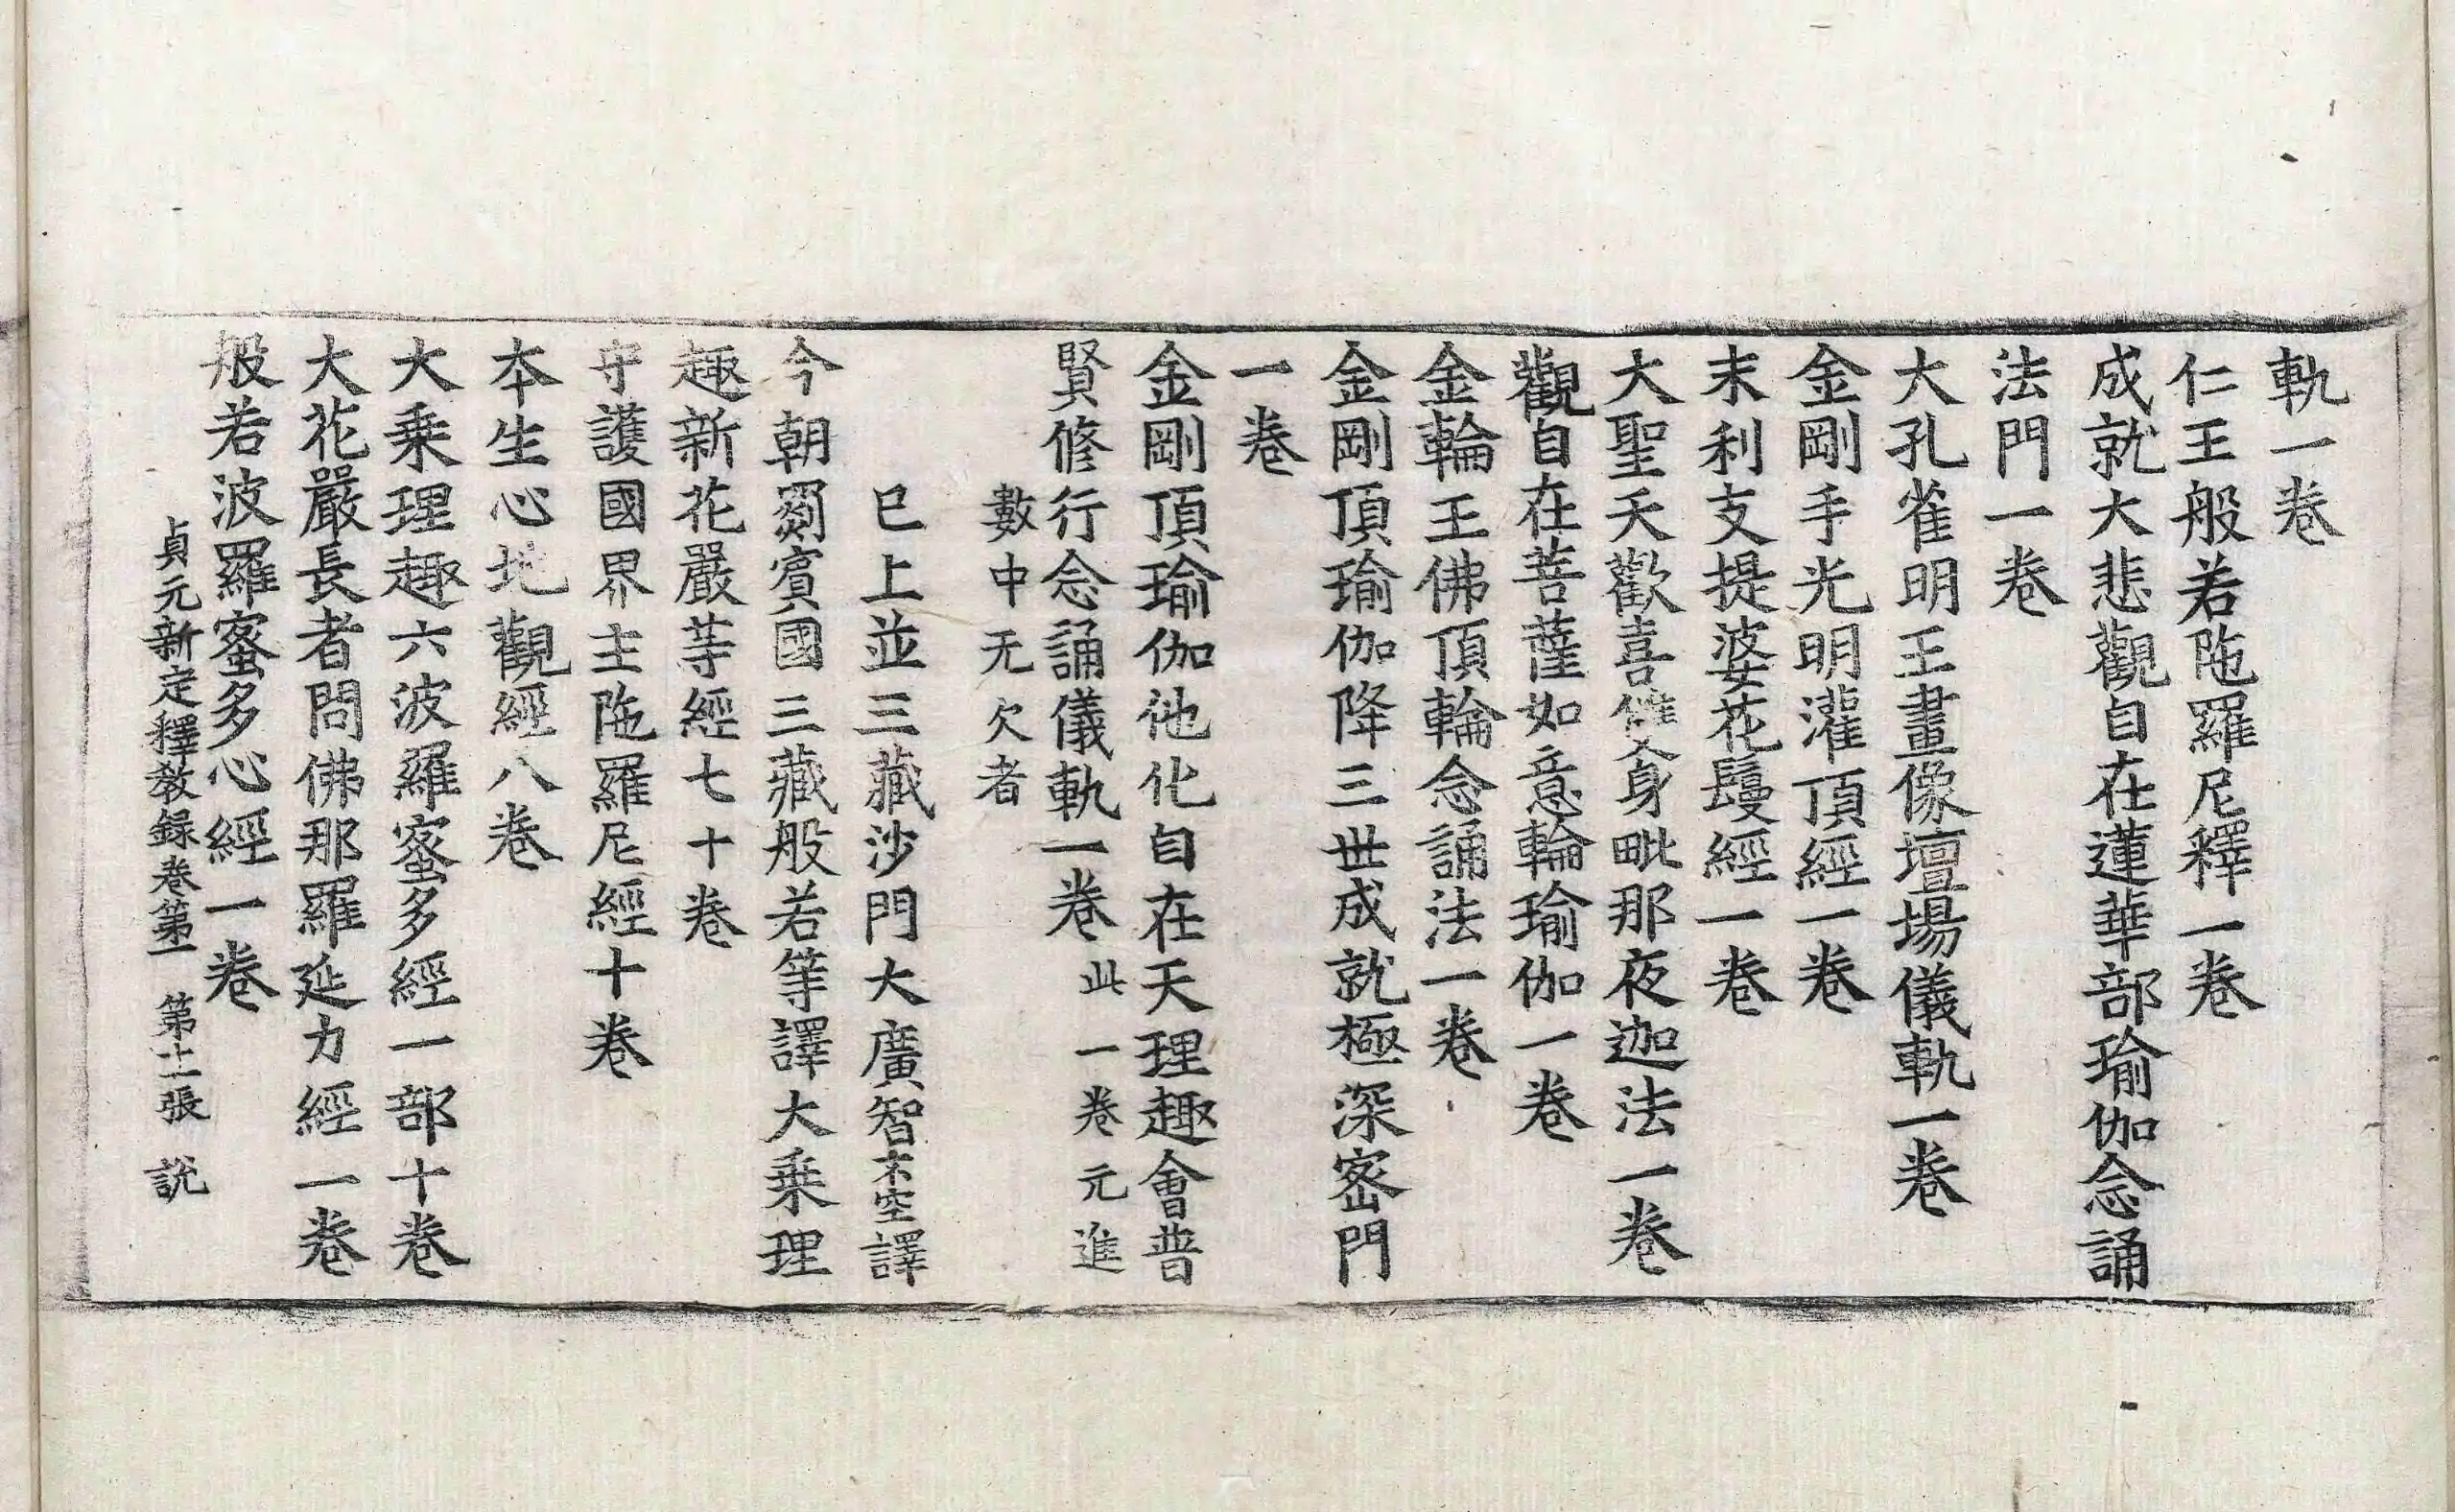 軌一卷
仁王般若陁羅尼釋一卷
成就大悲觀自在蓮華部瑜伽念誦
法門一卷
大孔雀明王畫像壇場儀軌一卷
金剛手光明灌頂經一卷
末利支提婆花鬘經一卷
大聖天歡喜雙身毗那夜迦法一卷
觀自在菩薩如意輪瑜伽一卷
金輪王佛頂輪念誦法一卷
金剛頂瑜伽降三世成就極深密門
一卷
金剛頂瑜伽他化自在天理趣會普
賢修行念誦儀軌一卷此一卷元進
數中无欠者
已上並三藏沙門大廣智不空譯
今朝罽賓國三藏般若等譯大乗理
趣新花嚴等經七十卷
守護國界主陁羅尼經十卷
本生心地觀經八卷
大乗理趣六波羅蜜多經一部十卷
大花嚴長者問佛那羅延力經一卷
般若波羅蜜多心經一卷
貞元新定釋教錄卷第一 第十二張 說